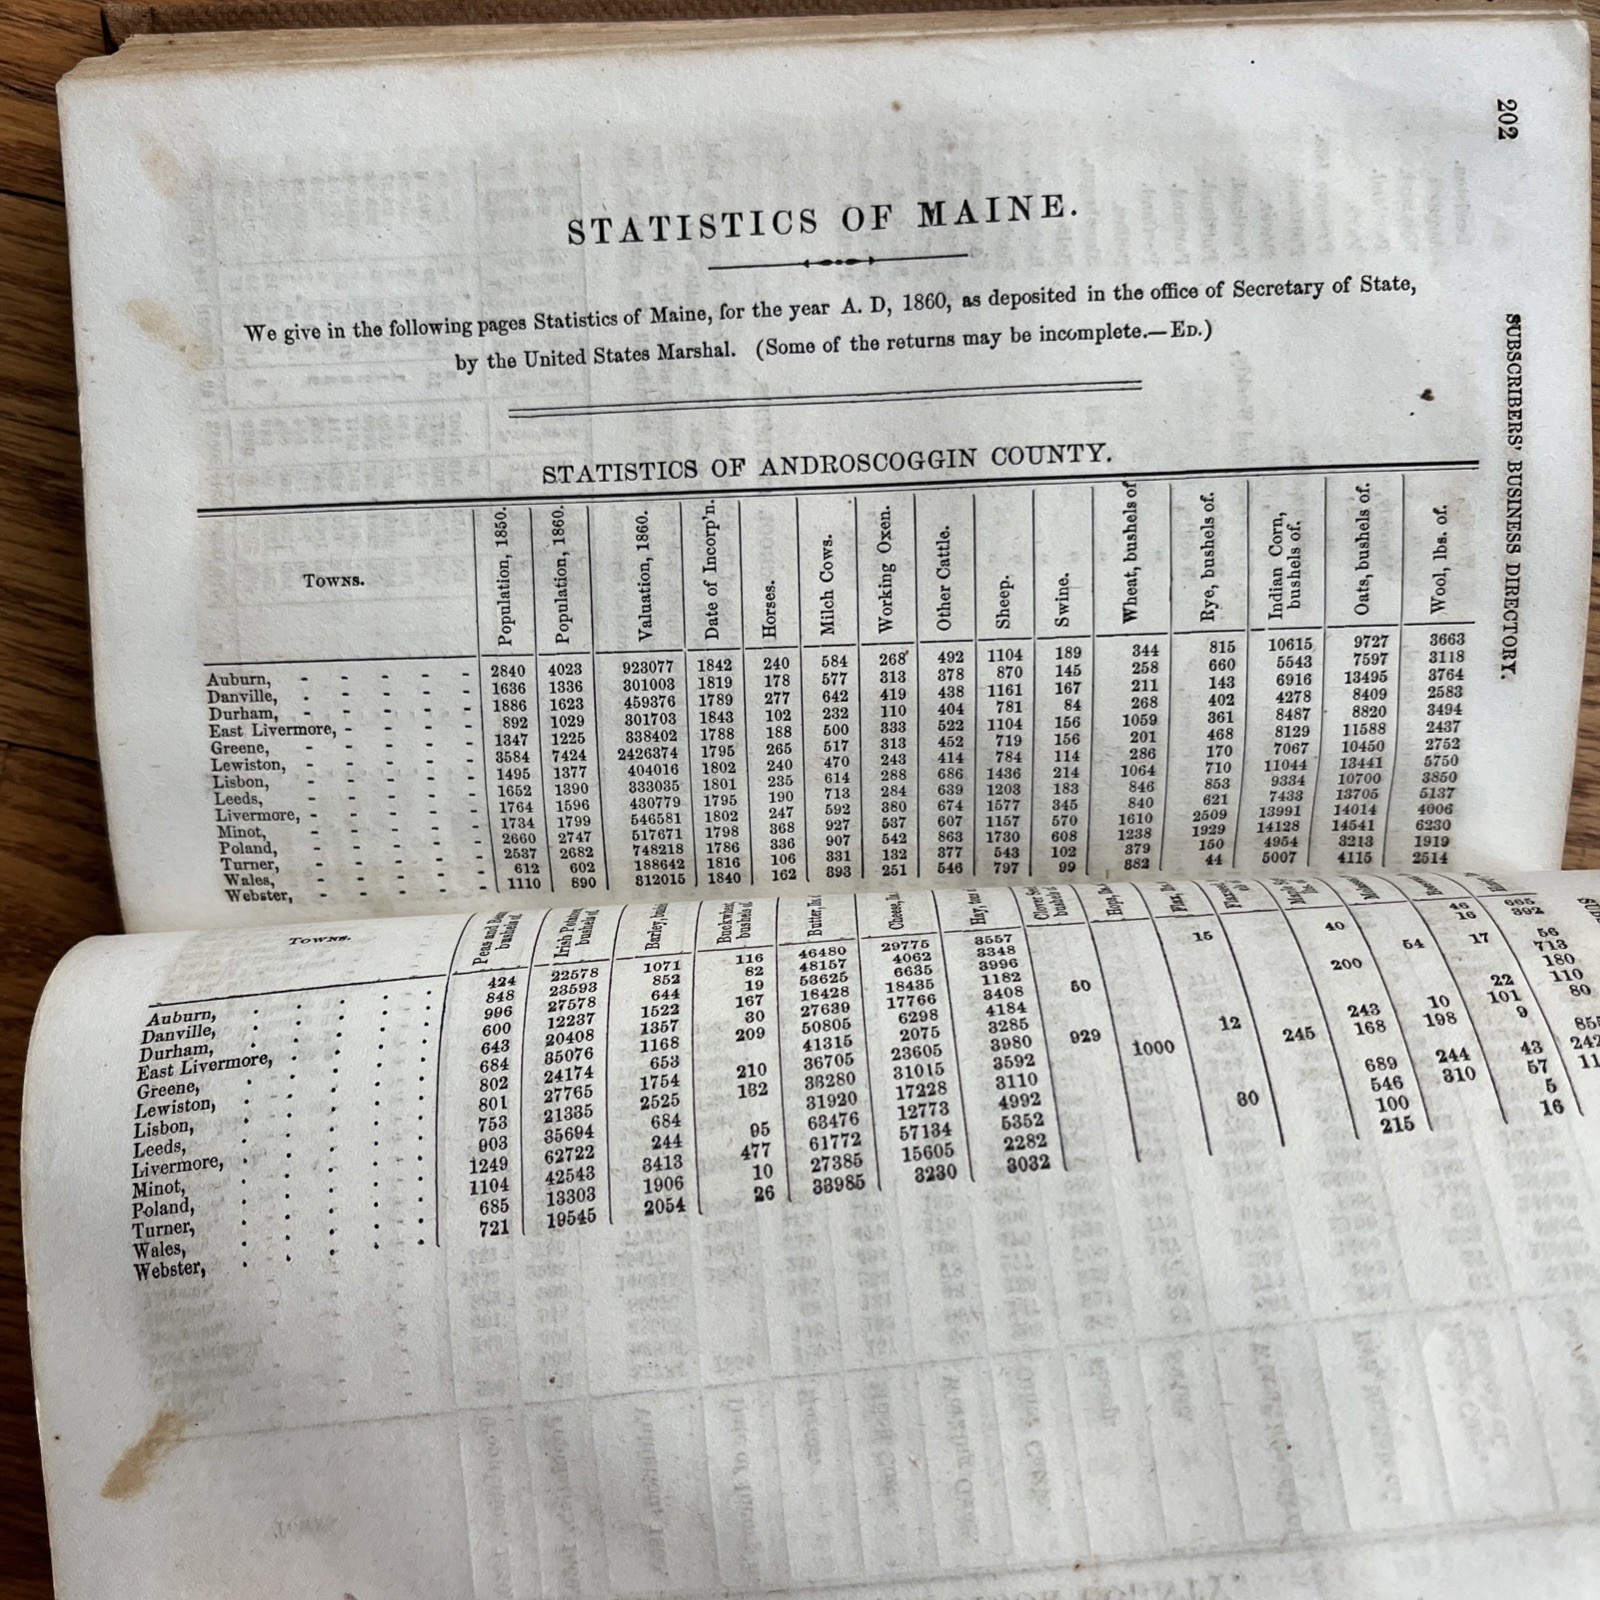 202
SUBSCRIBERS' BUSINESS DIRECTORY.
STATISTICS OF MAINE.
We give in the following pages Statistics of Maine, for the year A. D, 1860, as deposited in the office of Secretary of State,
by the United States Marshal. (Some of the returns may be incomplete.—ED.)
STATISTICS OF ANDROSCOGGIN COUNTY.
TOWNS. Population, 1850. Population, 1860. Valuation, 1860. Date of Incorp'n. Horses. Milch Cows. Working Oxen. Other Cattle. Sheep. Swine. Wheat, bushels of Rye, bushels of. Indian Corn, bushels of. Oats, bushels of. Wool, lbs. of.
Auburn, - - - - - 2840 4023 923077 1842 240 584 268 492 1104 189 344 815 10615 9727 3663
Danville, - - - - - 1636 1336 301003 1819 178 577 313 378 870 145 258 660 5543 7597 3118
Durham, - - - - - 1886 1623 459376 1789 277 642 419 438 1161 167 211 143 6916 13495 3764
East Livermore, - - - - 892 1029 301703 1843 102 232 110 404 781 84 268 402 4278 8409 2583
Greene, - - - - - 1347 1225 338402 1788 188 500 333 522 1104 156 1059 361 8487 8820 3494
Lewiston, - - - - - 3584 7424 2426374 1795 265 517 313 452 719 156 201 468 8129 11588 2437
Lisbon, - - - - - 1495 1377 404016 1802 240 470 243 414 784 114 286 170 7067 10450 2752
Leeds, - - - - - 1652 1390 333035 1801 235 614 288 686 1436 214 1064 710 11044 13441 5750
Livermore, - - - - - 1764 1596 430779 1795 190 713 284 639 1203 183 846 853 9334 10700 3850
Minot, - - - - - 1734 1799 546581 1802 247 592 380 674 1577 345 840 621 7433 13705 5137
Poland, - - - - - 2660 2747 517671 1798 368 927 537 607 1157 570 1610 2509 13991 14014 4006
Turner, - - - - - 2537 2682 748218 1786 336 907 542 863 1730 608 1238 1929 14128 14541 6230
Wales, - - - - - 612 602 188642 1816 106 331 132 377 543 102 379 150 4954 3213 1919
Webster, - - - - - 1110 890 312015 1840 162 393 251 546 797 99 882 44 5007 4115 2514
TOWNS. Peas and bushels of Irish bushels of Barley, Buckwheat bushels of Butter, Cheese, Hay, Clover bushels Hops, Flax,
Auburn, . . . . . 424 22578 1071 116 46480 29775 3557 46 665
Danville, . . . . . 848 23593 852 82 48157 4062 3348 16 392
Durham, . . . . . 996 27578 644 19 53625 6635 3996 15 40
East Livermore, . . . . 600 12237 1522 167 18428 18435 1182 17 56
Greene, . . . . . 643 20408 1357 30 27639 17766 3408 50 200 54 713
Lewiston, . . . . . 684 35076 1168 209 50805 6298 4184 180
Lisbon, . . . . . 802 24174 653 41315 2075 3285 22 110
Leeds, . . . . . 801 27765 1754 210 36705 23605 3980 929 12 243 10 101 80
Livermore, . . . . . 753 21335 2525 38280 31015 3592 1000 245 168 198 9
Minot, . . . . . 903 35694 684 31920 17228 3110
Poland, . . . . . 1249 62722 244 95 63476 12773 4992 689 244 43
Turner, . . . . . 1104 42543 3413 477 61772 57134 5352 30 546 310 57
Wales, . . . . . 685 13303 1906 10 27385 15605 2282 100 5
Webster, . . . . . 721 19545 2054 26 33985 3230 3032 215 16